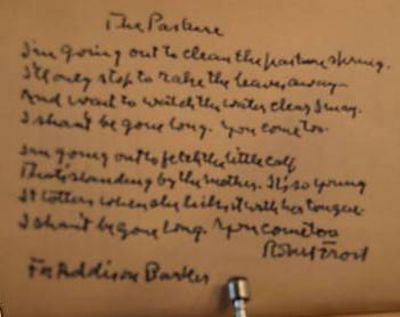 The Pasture
I'm going out to clean the pasture spring.
I'll only stop to rake the leaves away
And wait to watch the water clear I may.
I shan't be gone long. You come too.
I'm going out to fetch the little calf
That's standing by the mother. It's so young
It totters when she licks it with her tongue.
I shan't be gone long. You come too
Robert Frost
For Addison Barker